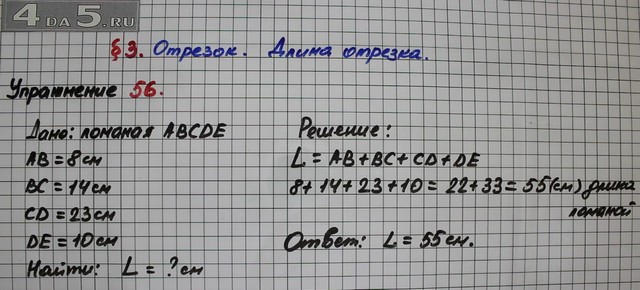 4DA5.RU
§ 3. Отрезок. Длина отрезка.
Упражнение 56.
Дано: ломаная ABCDE
AB = 8 см
BC = 14 см
CD = 23 см
DE = 10 см
Найти: L = ? см
Решение:
L = AB + BC + CD + DE
8 + 14 + 23 + 10 = 22 + 33 = 55 (см) длина
ломаной
Ответ: L = 55 см.